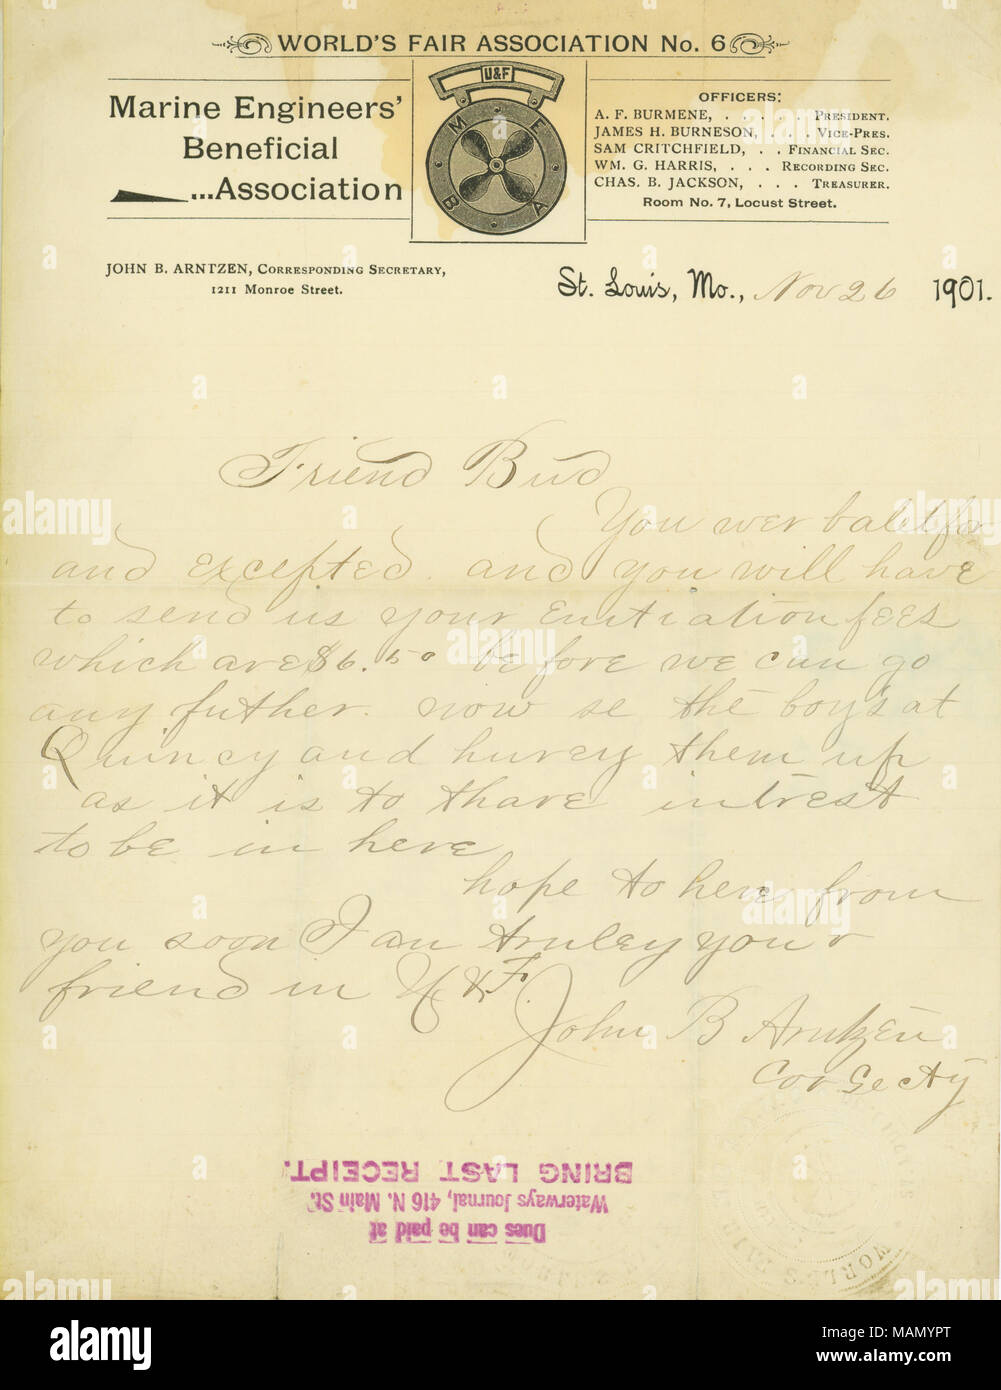 WORLD'S FAIR ASSOCIATION No. 6
Marine Engineers'
Beneficial
...Association
U&F
M E B A
OFFICERS:
A. F. BURMENE, . . . . . PRESIDENT.
JAMES H. BURNESON, . . . VICE-PRES.
SAM CRITCHFIELD, . . FINANCIAL SEC.
WM. G. HARRIS, . . . RECORDING SEC.
CHAS. B. JACKSON, . . . TREASURER.
Room No. 7, Locust Street.
JOHN B. ARNTZEN, CORRESPONDING SECRETARY,
1211 Monroe Street.
St. Louis, Mo., Nov 26 1901.
Friend Bud
You wer balit for
and excepted. and you will have
to send us your enitiation fees
which are $6.50 before we can go
any futher. now se the boy's at
Quincy and hurey them up
as it is to thare intrest
to be in here
hope to here from
you soon I am truley your
friend in U & F.
John B Arntzen
Cor Secty
Dues can be paid at
Waterways Journal, 416 N. Main St.
BRING LAST RECEIPT.
WORLD'S FAIR
alamy
alamy
Image ID: MAMYPT
www.alamy.com